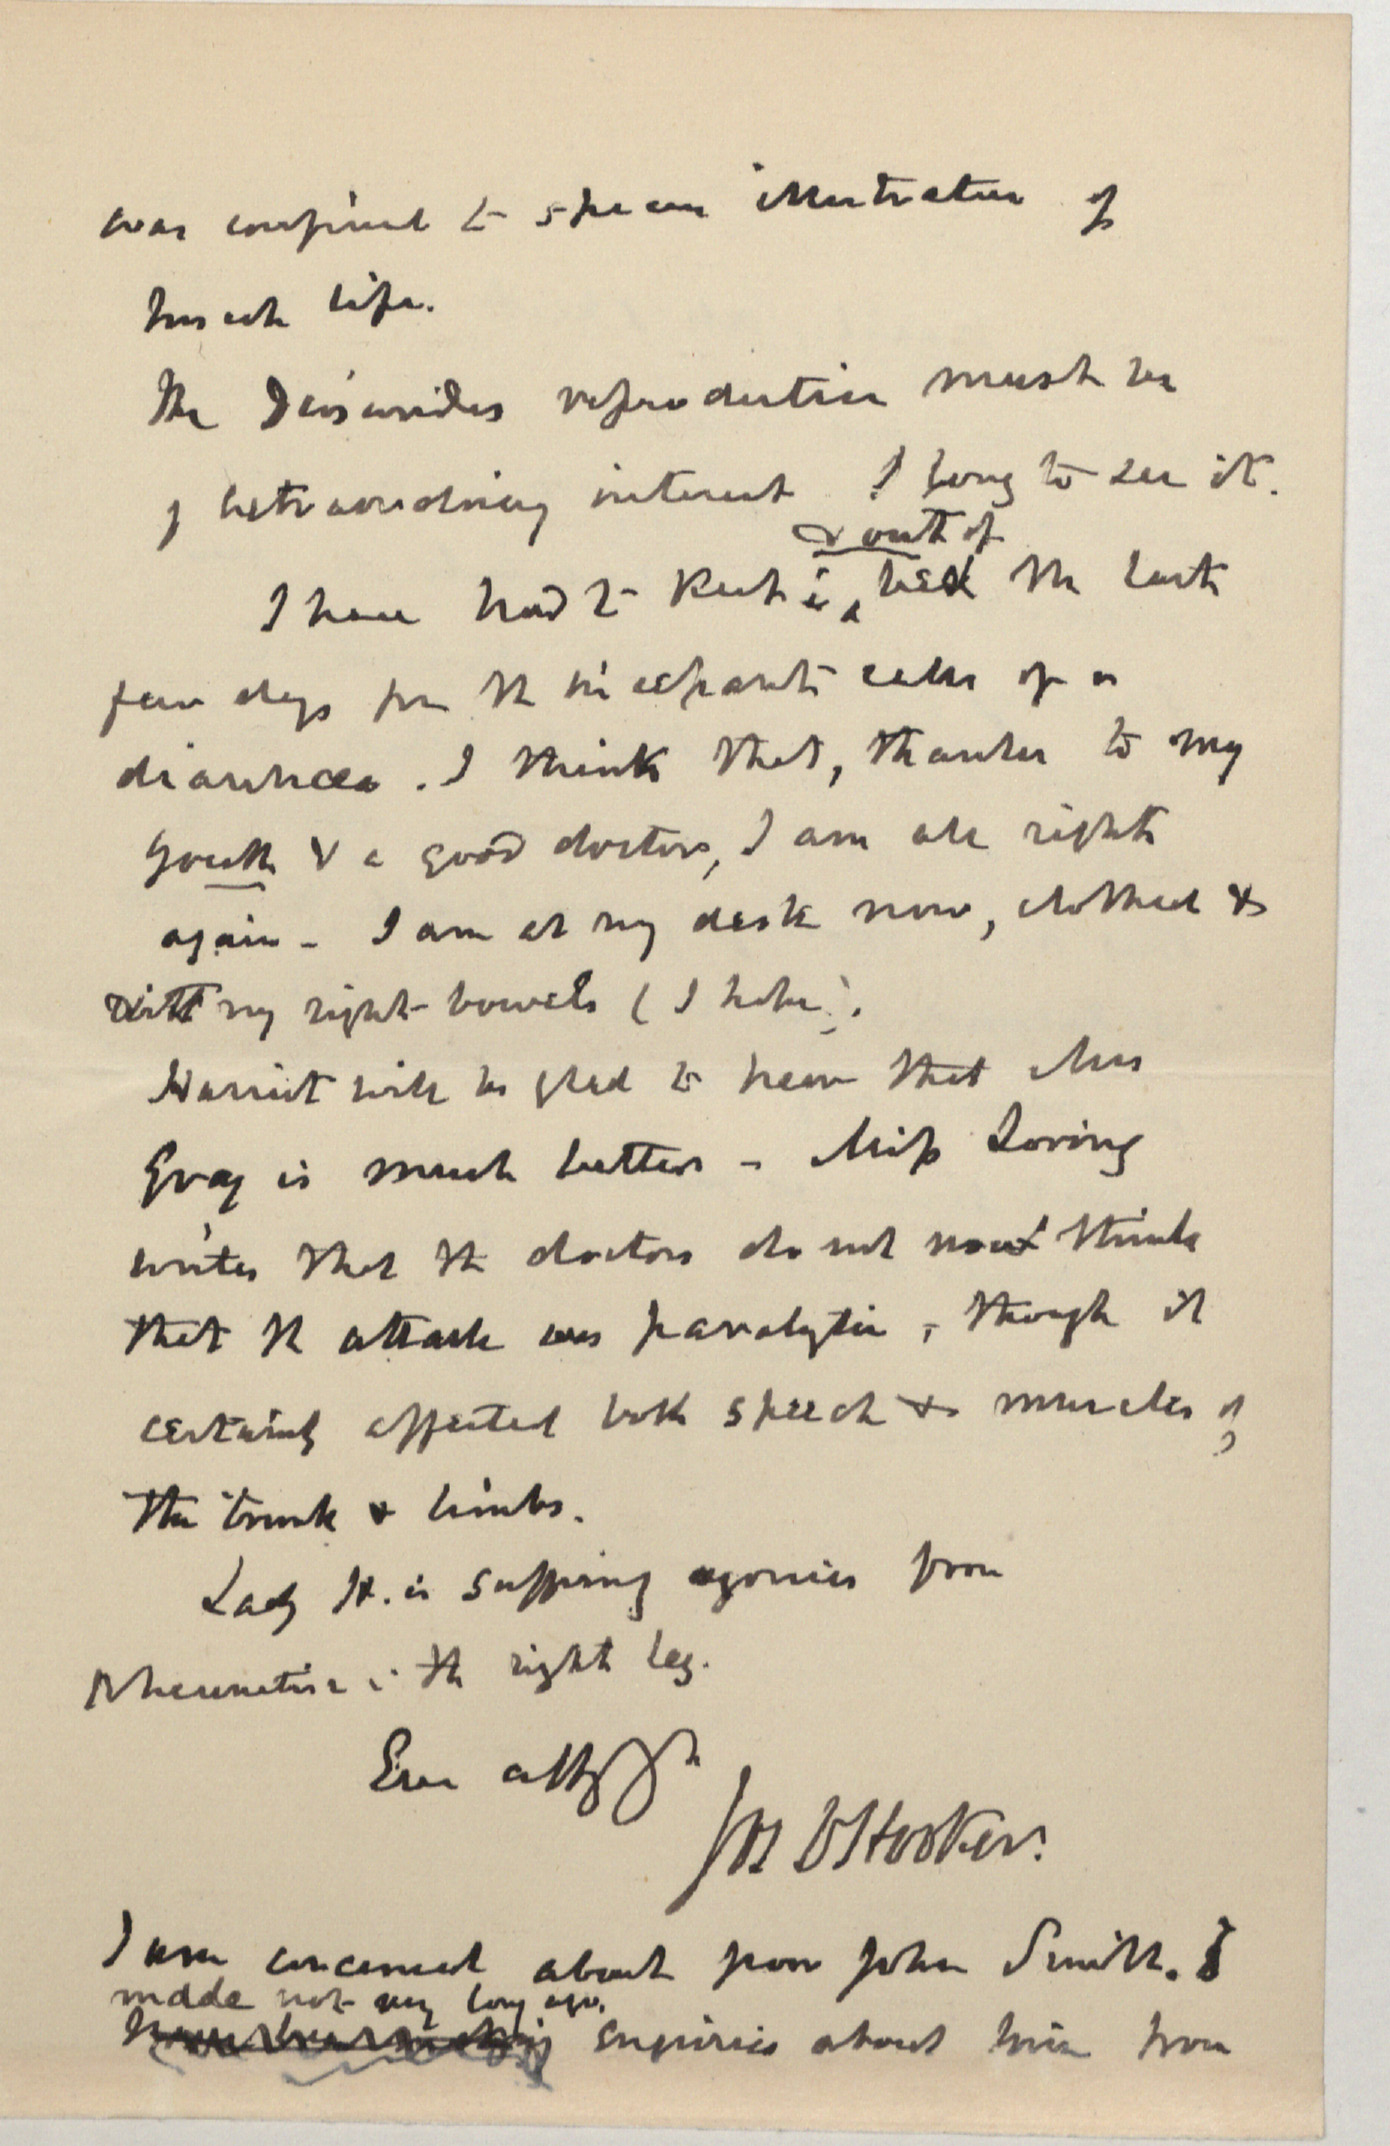 was confined to specim illustration of
Insect life.
The Dioscorides reproduction must be
of extraordinary interest I long to see it.
& out of
I have had to keep in bed the last
few days from the incessant calls of a
diarrhœa. I think that, thanks to my
youth & a good doctor, I am all right
again – I am at my desk now, clothed &
with my right bowels (I hope).
Harriet will be glad to hear that Mrs
Gray is much better – Miss Loring
writes that the doctors do not now think
that the attack was paralytic, though it
certainly affected both speech & muscles of
the trunk & limbs.
Lady H. is suffering agonies from
Rheumatism in the right leg.
Ever affy yrs
Jos D Hooker.
I am concerned about poor John Smith. I
made not very long ago.
enquiries about him from